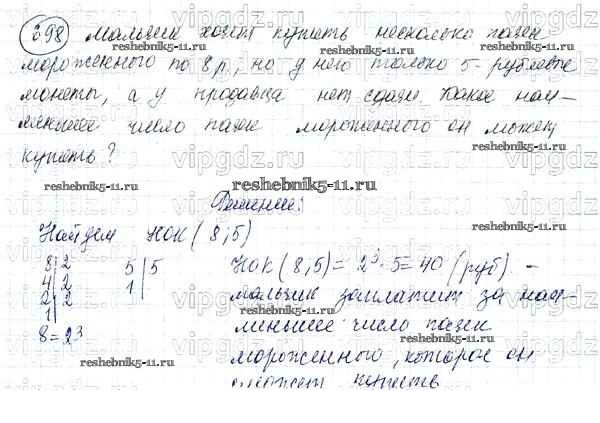 298 Мальчик хочет купить несколько пачек
мороженного по 8 р, но у него только 5-рублевые
монеты, а у продавца нет сдачи. Какое наи-
меньшее число пачек мороженного он может
купить?
reshebnik5-11.ru
Решение:
Найдем НОК (8;5)
8|2 5|5
4|2 1|
2|2
1|
8=2³
НОК (8,5) = 2³·5 = 40 (руб) -
мальчик заплатит за наи-
меньшее число пачек
мороженного, которое он
сможет купить
reshebnik5-11.ru
vipgdz.ru